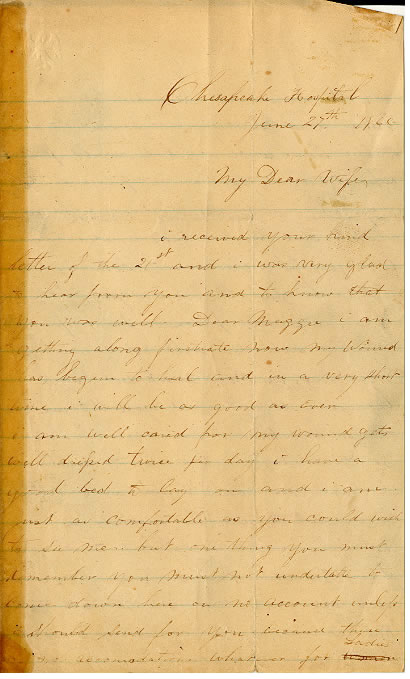 Chesapeake Hospital
June 27th 186
My Dear Wife,
i received your kind
letter of the 21st and i was very glad
to hear from you and to know that
you was well Dear Maggie i am
getting along firstrate now my wound
has begun to heal and in a very short
time i will be as good as ever
i am well cared for my wound gets
well dressed twice per day i have a
good bed to lay on and i am
just as comfortable as you could wish
to see me but one thing you must
remember you must not undertake to
come down here on no account unless
i should send for you because there
is no accomodation whatever for women
Ladies